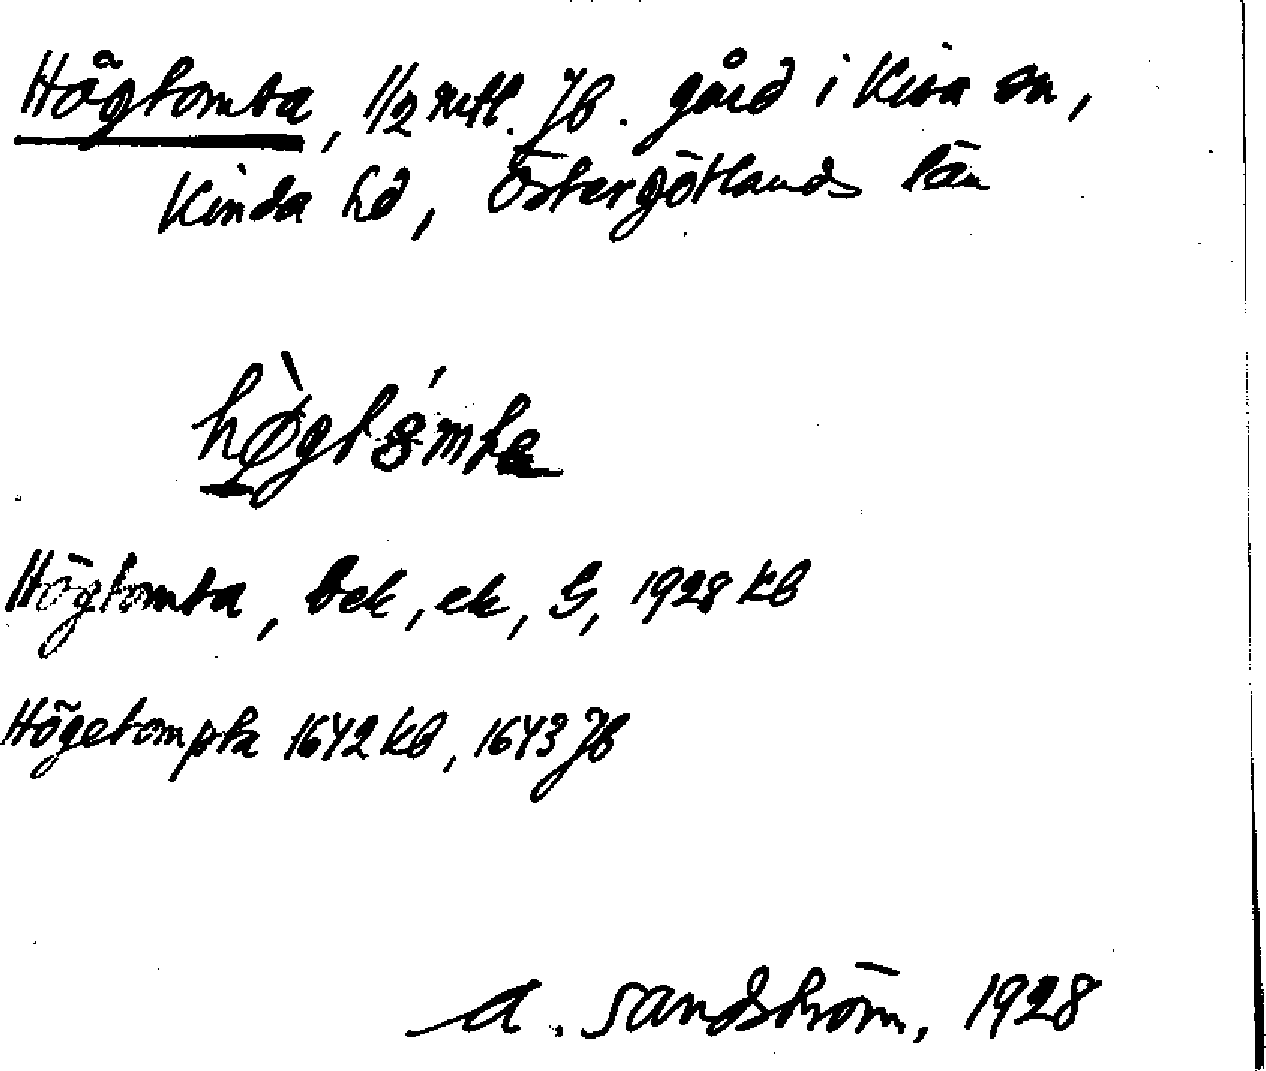 Högtomta, 1/2 mtl. Jb. gård i Kisa sn,
Kinda hd, Östergötlands län
høgtòmta
Högtomta, bek, ek, G, 1928 kb
Högetompta 1642 kb, 1643 Jb
A. Sandström, 1928